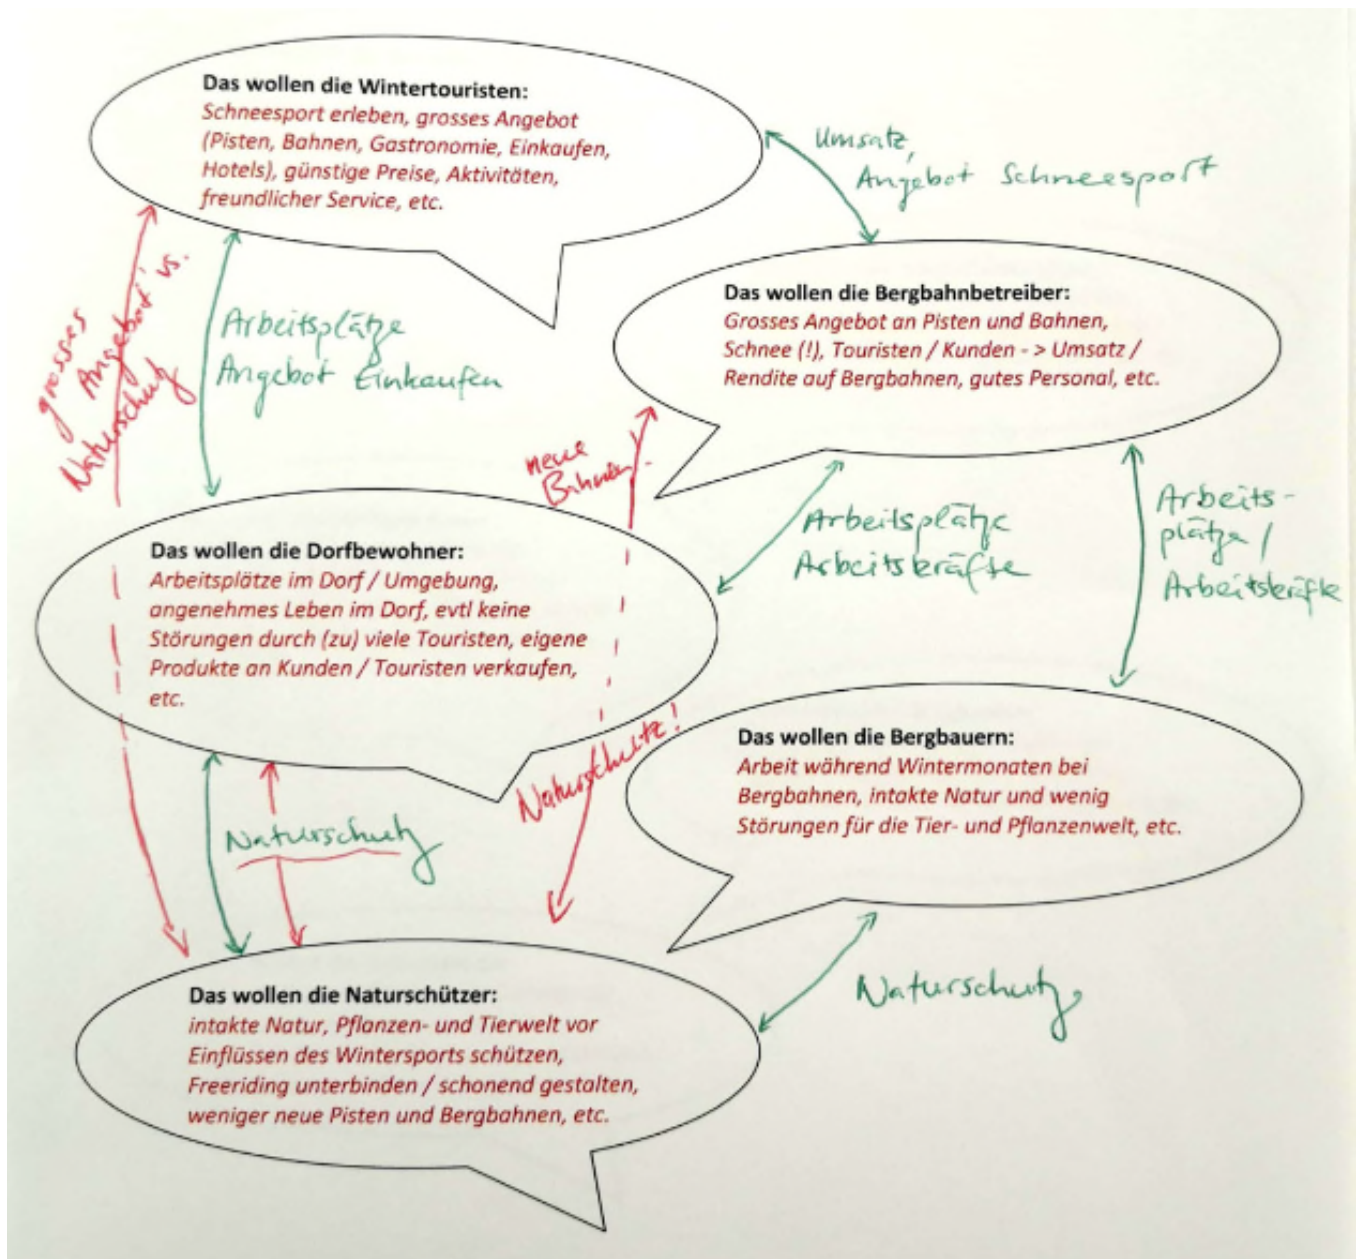 Das wollen die Wintertouristen:
Schneesport erleben, grosses Angebot
(Pisten, Bahnen, Gastronomie, Einkaufen,
Hotels), günstige Preise, Aktivitäten,
freundlicher Service, etc.
Umsatz,
Angebot Schneesport
grosses
Angebot vs.
Naturschutz
Arbeitsplätze
Angebot Einkaufen
Das wollen die Bergbahnbetreiber:
Grosses Angebot an Pisten und Bahnen,
Schnee (!), Touristen / Kunden - > Umsatz /
Rendite auf Bergbahnen, gutes Personal, etc.
neue
Bahnen
Arbeitsplätze
Arbeitskräfte
Arbeits-
plätze /
Arbeitskräfte
Das wollen die Dorfbewohner:
Arbeitsplätze im Dorf / Umgebung,
angenehmes Leben im Dorf, evtl keine
Störungen durch (zu) viele Touristen, eigene
Produkte an Kunden / Touristen verkaufen,
etc.
Naturschutz!
Das wollen die Bergbauern:
Arbeit während Wintermonaten bei
Bergbahnen, intakte Natur und wenig
Störungen für die Tier- und Pflanzenwelt, etc.
Naturschutz
Naturschutz
Das wollen die Naturschützer:
intakte Natur, Pflanzen- und Tierwelt vor
Einflüssen des Wintersports schützen,
Freeriding unterbinden / schonend gestalten,
weniger neue Pisten und Bergbahnen, etc.